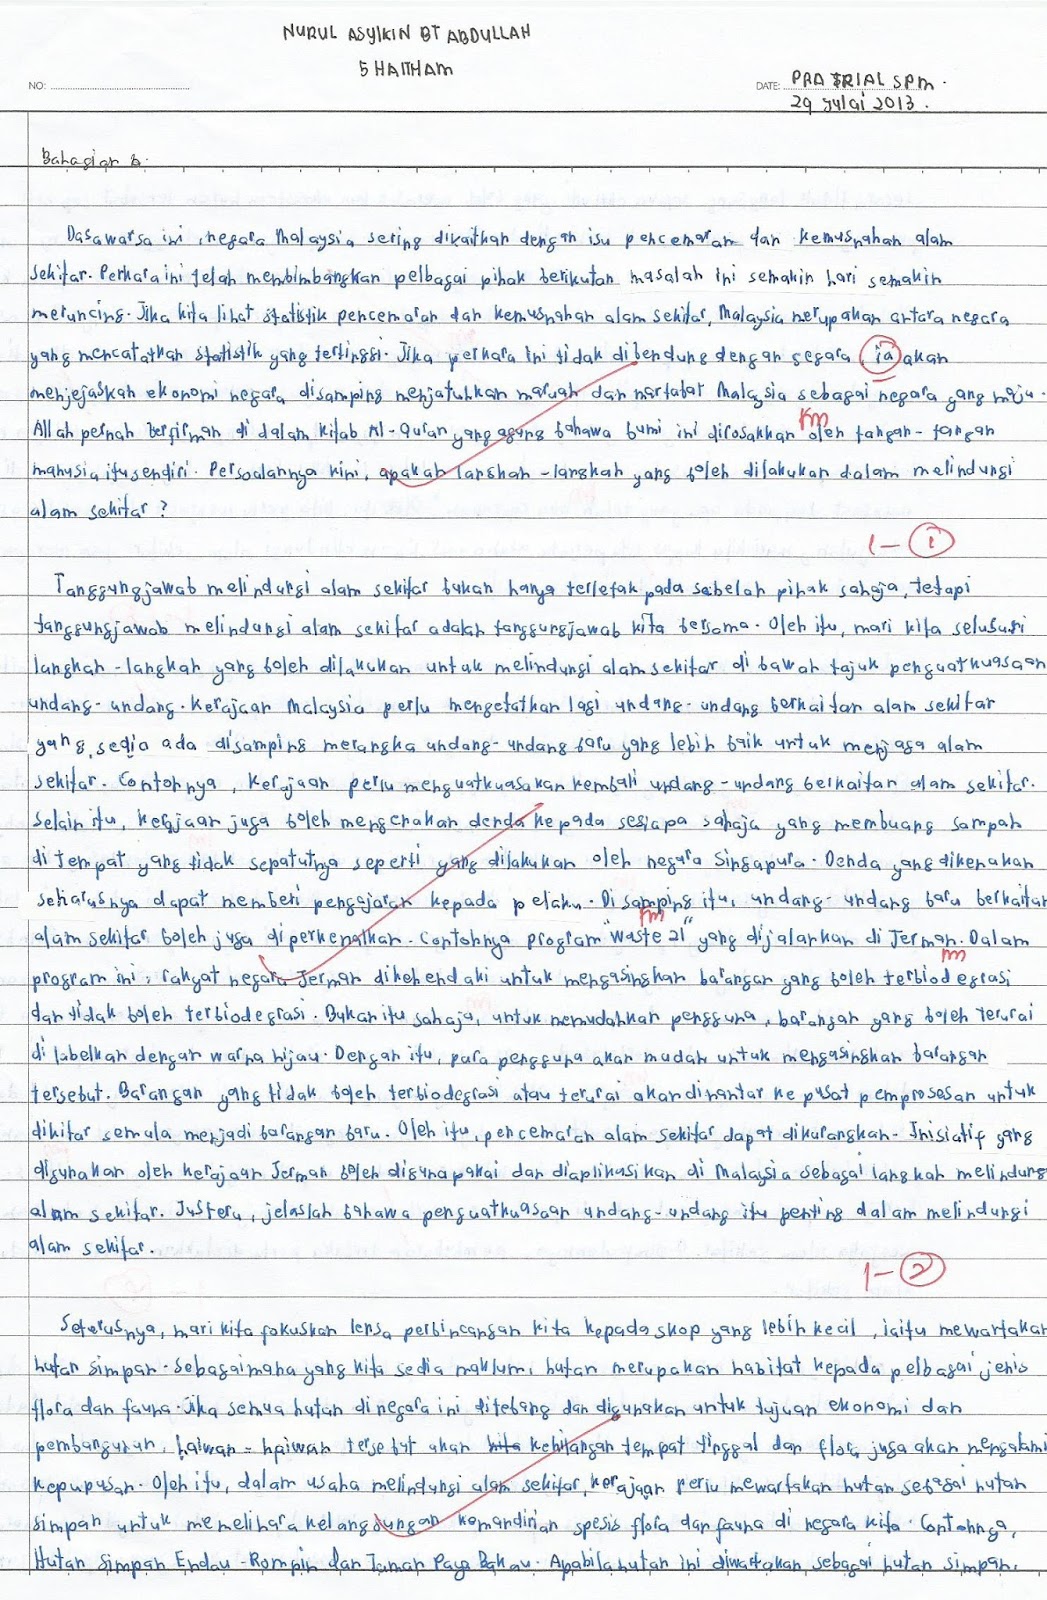 NURUL ASYIKIN BT ABDULLAH
5 HAITHAM
NO:
DATE: PRA TRIAL SPM.
29 Julai 2013.
Bahagian B.
Dasawarsa ini, negara Malaysia sering dikaitkan dengan isu pencemaran dan kemusnahan alam
sekitar. Perkara ini telah membimbangkan pelbagai pihak berikutan masalah ini semakin hari semakin
meruncing. Jika kita lihat statistik pencemaran dan kemusnahan alam sekitar, Malaysia merupakan antara negara
yang mencatatkan statistik yang tertinggi. Jika perkara ini tidak dibendung dengan segara, ia akan
menjejaskan ekonomi negara disamping menjatuhkan maruah dan martabat Malaysia sebagai negara yang maju.
km
Allah pernah berfirman di dalam kitab Al-Quran yang agung bahawa bumi ini dirosakkan oleh tangan-tangan
manusia itu sendiri. Persoalannya kini, apakah langkah-langkah yang boleh dilakukan dalam melindungi
alam sekitar?
1-1
Tanggungjawab melindungi alam sekitar bukan hanya terletak pada sebelah pihak sahaja, tetapi
tanggungjawab melindungi alam sekitar adalah tanggungjawab kita bersama. Oleh itu, mari kita selusuri
langkah-langkah yang boleh dilakukan untuk melindungi alam sekitar di bawah tajuk penguatkuasaan
undang-undang. Kerajaan Malaysia perlu mengetatkan lagi undang-undang berkaitan alam sekitar
yang sedia ada disamping merangka undang-undang baru yang lebih baik untuk menjaga alam
sekitar. Contohnya, kerajaan perlu menguatkuasakan kembali undang-undang berkaitan alam sekitar.
Selain itu, kerajaan juga boleh mengenakan denda kepada sesiapa sahaja yang membuang sampah
di tempat yang tidak sepatutnya seperti yang dilakukan oleh negara Singapura. Denda yang dikenakan
seharusnya dapat memberi pengajaran kepada pelaku. Disamping itu, undang-undang baru berkaitan
fm
alam sekitar boleh juga diperkenalkan. Contohnya program "Waste 21" yang dijalankan di Jerman. Dalam
fm
program ini, rakyat negara Jerman dikehendaki untuk mengasingkan barangan yang boleh terbiodegrasi
dan tidak boleh terbiodegrasi. Bukan itu sahaja, untuk memudahkan pengguna, barangan yang boleh terurai
di labelkan dengan warna hijau. Dengan itu, para pengguna akan mudah untuk mengasingkan barangan
tersebut. Barangan yang tidak boleh terbiodegrasi atau terurai akan dihantar ke pusat pemprosesan untuk
dikitar semula menjadi barangan baru. Oleh itu, pencemaran alam sekitar dapat dikurangkan. Inisiatif yang
digunakan oleh kerajaan Jerman boleh digunapakai dan diaplikasikan di Malaysia sebagai langkah melindungi
alam sekitar. Justeru, jelaslah bahawa penguatkuasaan undang-undang itu penting dalam melindungi
alam sekitar.
1-2
Seterusnya, mari kita fokuskan lensa perbincangan kita kepada skop yang lebih kecil, iaitu mewartakan
hutan simpan. Sebagaimana yang kita sedia maklum, hutan merupakan habitat kepada pelbagai jenis
flora dan fauna. Jika semua hutan di negara ini ditebang dan digunakan untuk tujuan ekonomi dan
pembangunan, haiwan-haiwan tersebut akan kehilangan tempat tinggal dan flora juga akan mengalami
kepupusan. Oleh itu, dalam usaha melindungi alam sekitar, kerajaan perlu mewartakan hutan sebagai hutan
simpan untuk memelihara kelangsungan kemandirian spesis flora dan fauna di negara kita. Contohnya,
Hutan Simpan Endau-Rompin dan Taman Paya Bakau. Apabila hutan ini diwartakan sebagai hutan simpan,